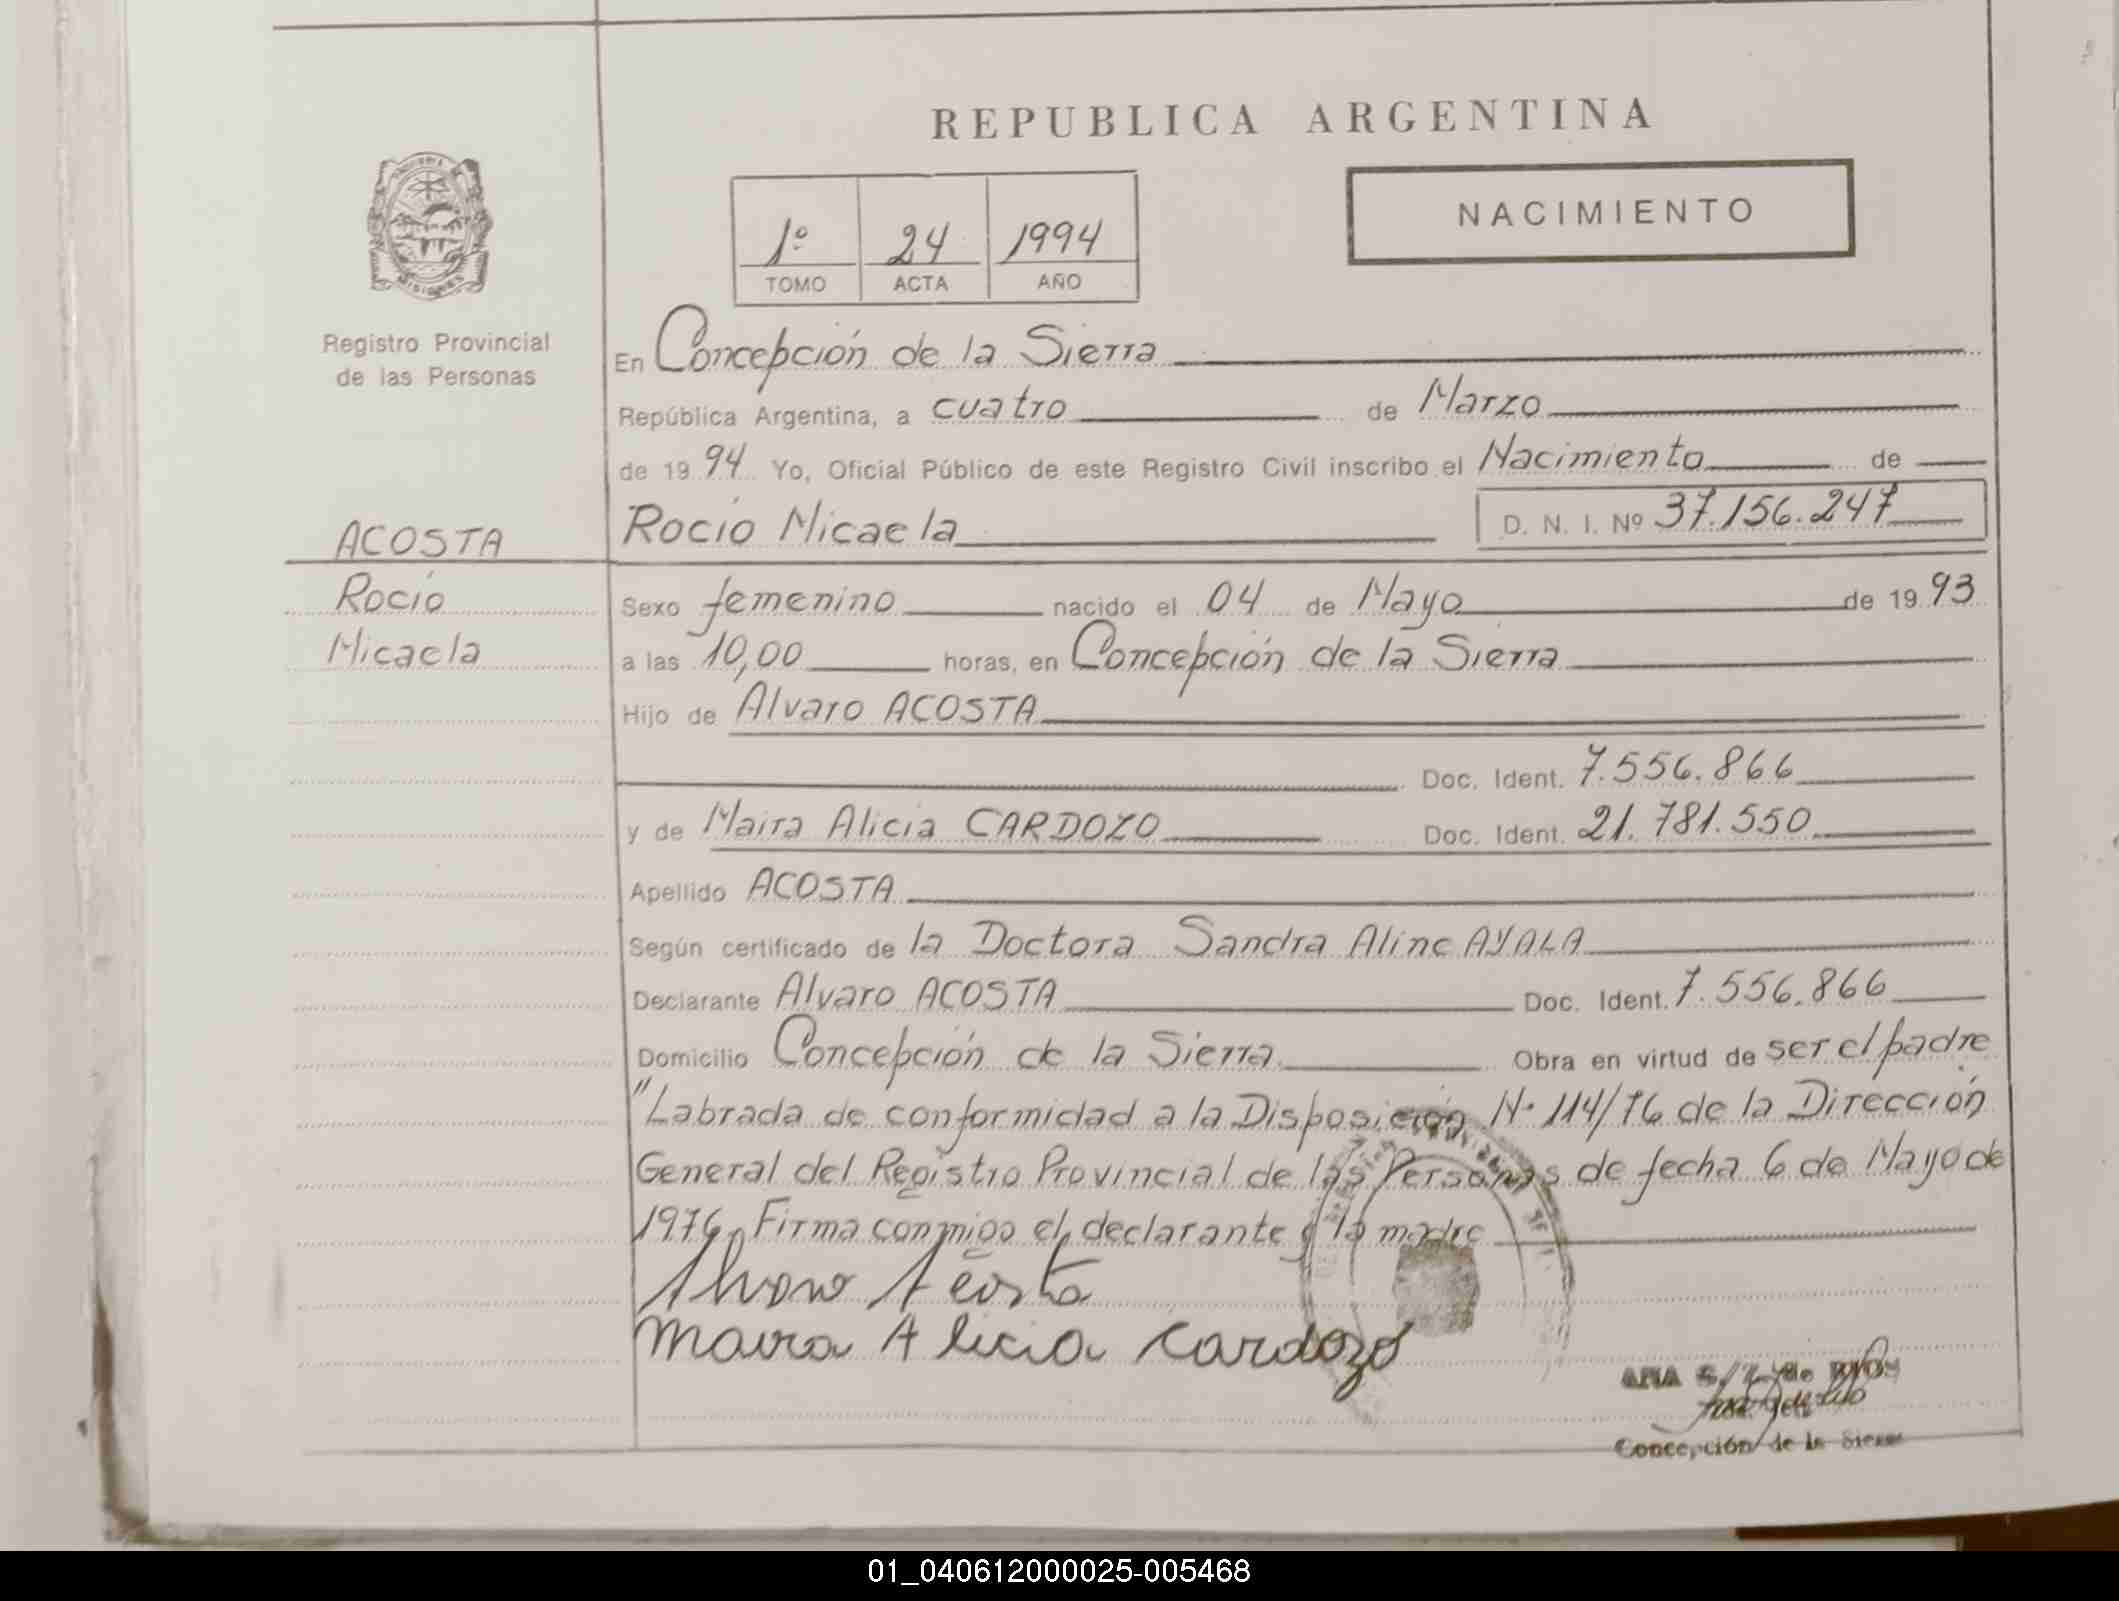 REPUBLICA ARGENTINA
NACIMIENTO
1º 24 1994
TOMO ACTA AÑO
MISIONES
Registro Provincial
de las Personas
En Concepción de la Sierra
República Argentina, a cuatro de Marzo
de 1994 Yo, Oficial Público de este Registro Civil inscribo el Nacimiento de
ACOSTA
Rocío
Micaela
Rocío Micaela D. N. I. Nº 37.156.247
Sexo femenino nacido el 04 de Mayo de 1993
a las 10,00 horas, en Concepción de la Sierra
Hijo de Alvaro ACOSTA
Doc. Ident. 7.556.866
y de Maira Alicia CARDOZO Doc. Ident. 21.781.550
Apellido ACOSTA
Según certificado de la Doctora Sandra Aline AYALA
Declarante Alvaro ACOSTA Doc. Ident. 7.556.866
Domicilio Concepción de la Sierra Obra en virtud de ser el padre
"Labrada de conformidad a la Disposición Nº 114/76 de la Dirección
General del Registro Provincial de las Personas de fecha 6 de Mayo de
1976. Firma conmigo el declarante y la madre
Alvaro Acosta
Maira Alicia Cardozo
ANA de
Concepción de la Sierra
01_040612000025-005468